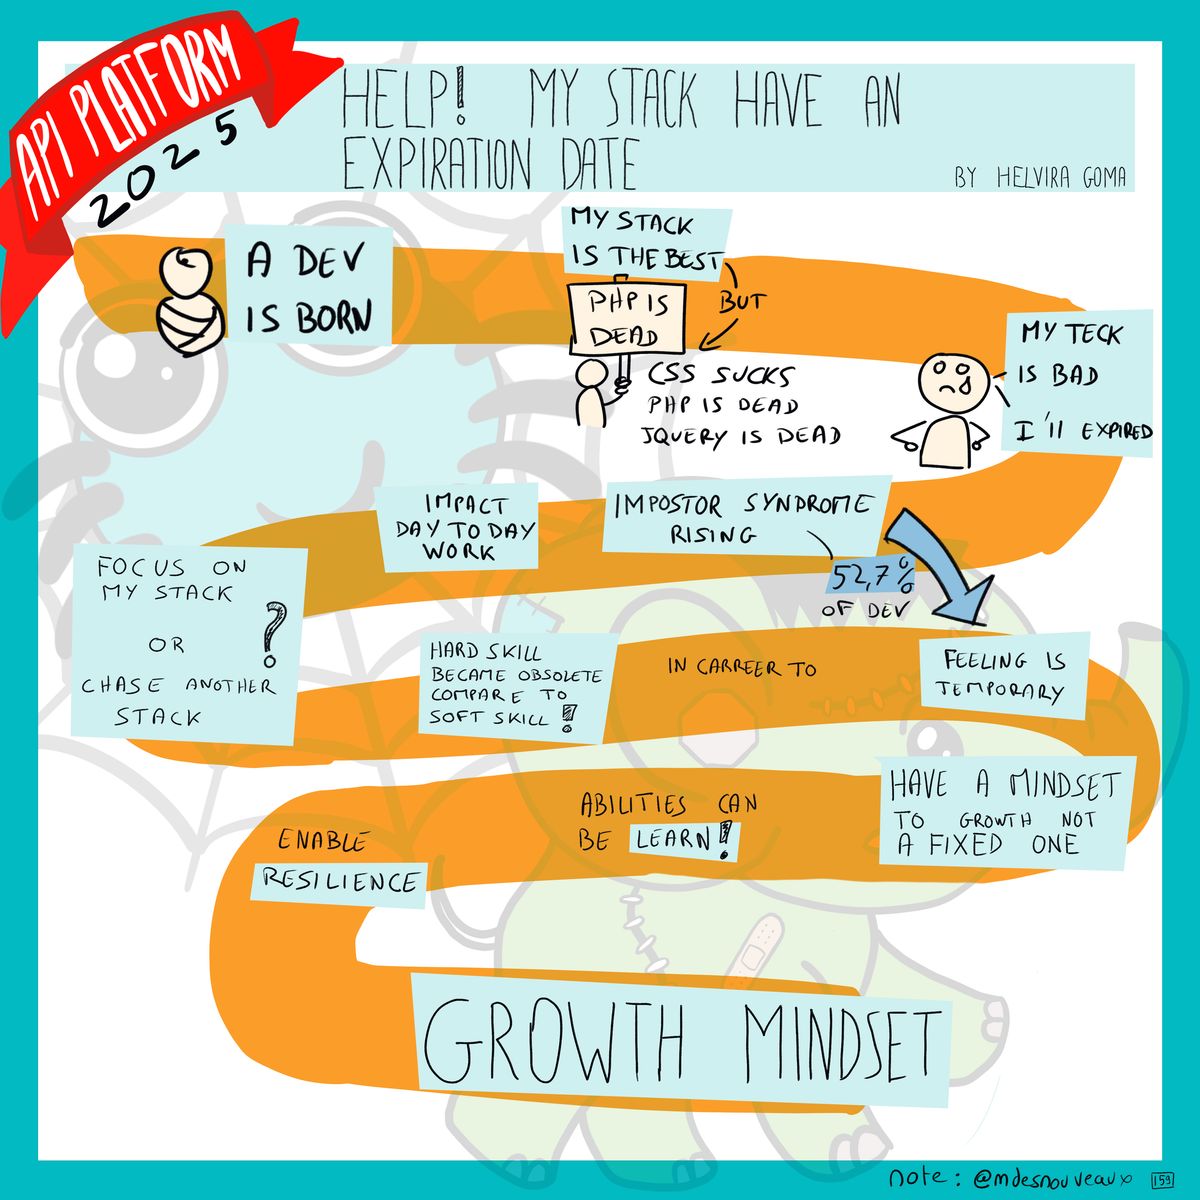 API PLATFORM
2025
HELP! MY STACK HAVE AN
EXPIRATION DATE
BY HELVIRA GOMA
A DEV
IS BORN
MY STACK
IS THE BEST
BUT
PHP IS
DEAD
CSS SUCKS
PHP IS DEAD
JQUERY IS DEAD
MY TECK
IS BAD
I'll EXPIRED
IMPOSTOR SYNDROME
RISING
52,7%
OF DEV
IMPACT
DAY TO DAY
WORK
FOCUS ON
MY STACK
OR
CHASE ANOTHER
STACK
?
HARD SKILL
BECAME OBSOLETE
COMPARE TO
SOFT SKILL!
IN CARREER TO
FEELING IS
TEMPORARY
HAVE A MINDSET
TO GROWTH NOT
A FIXED ONE
ABILITIES CAN
BE LEARN!
ENABLE
RESILIENCE
GROWTH MINDSET
note: @mdesnouveaux 159